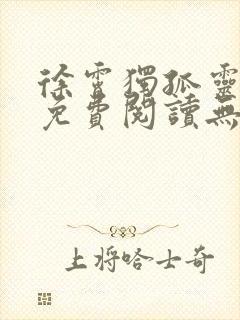 徐霄獨孤靈
免費閱讀無
上將哈士奇